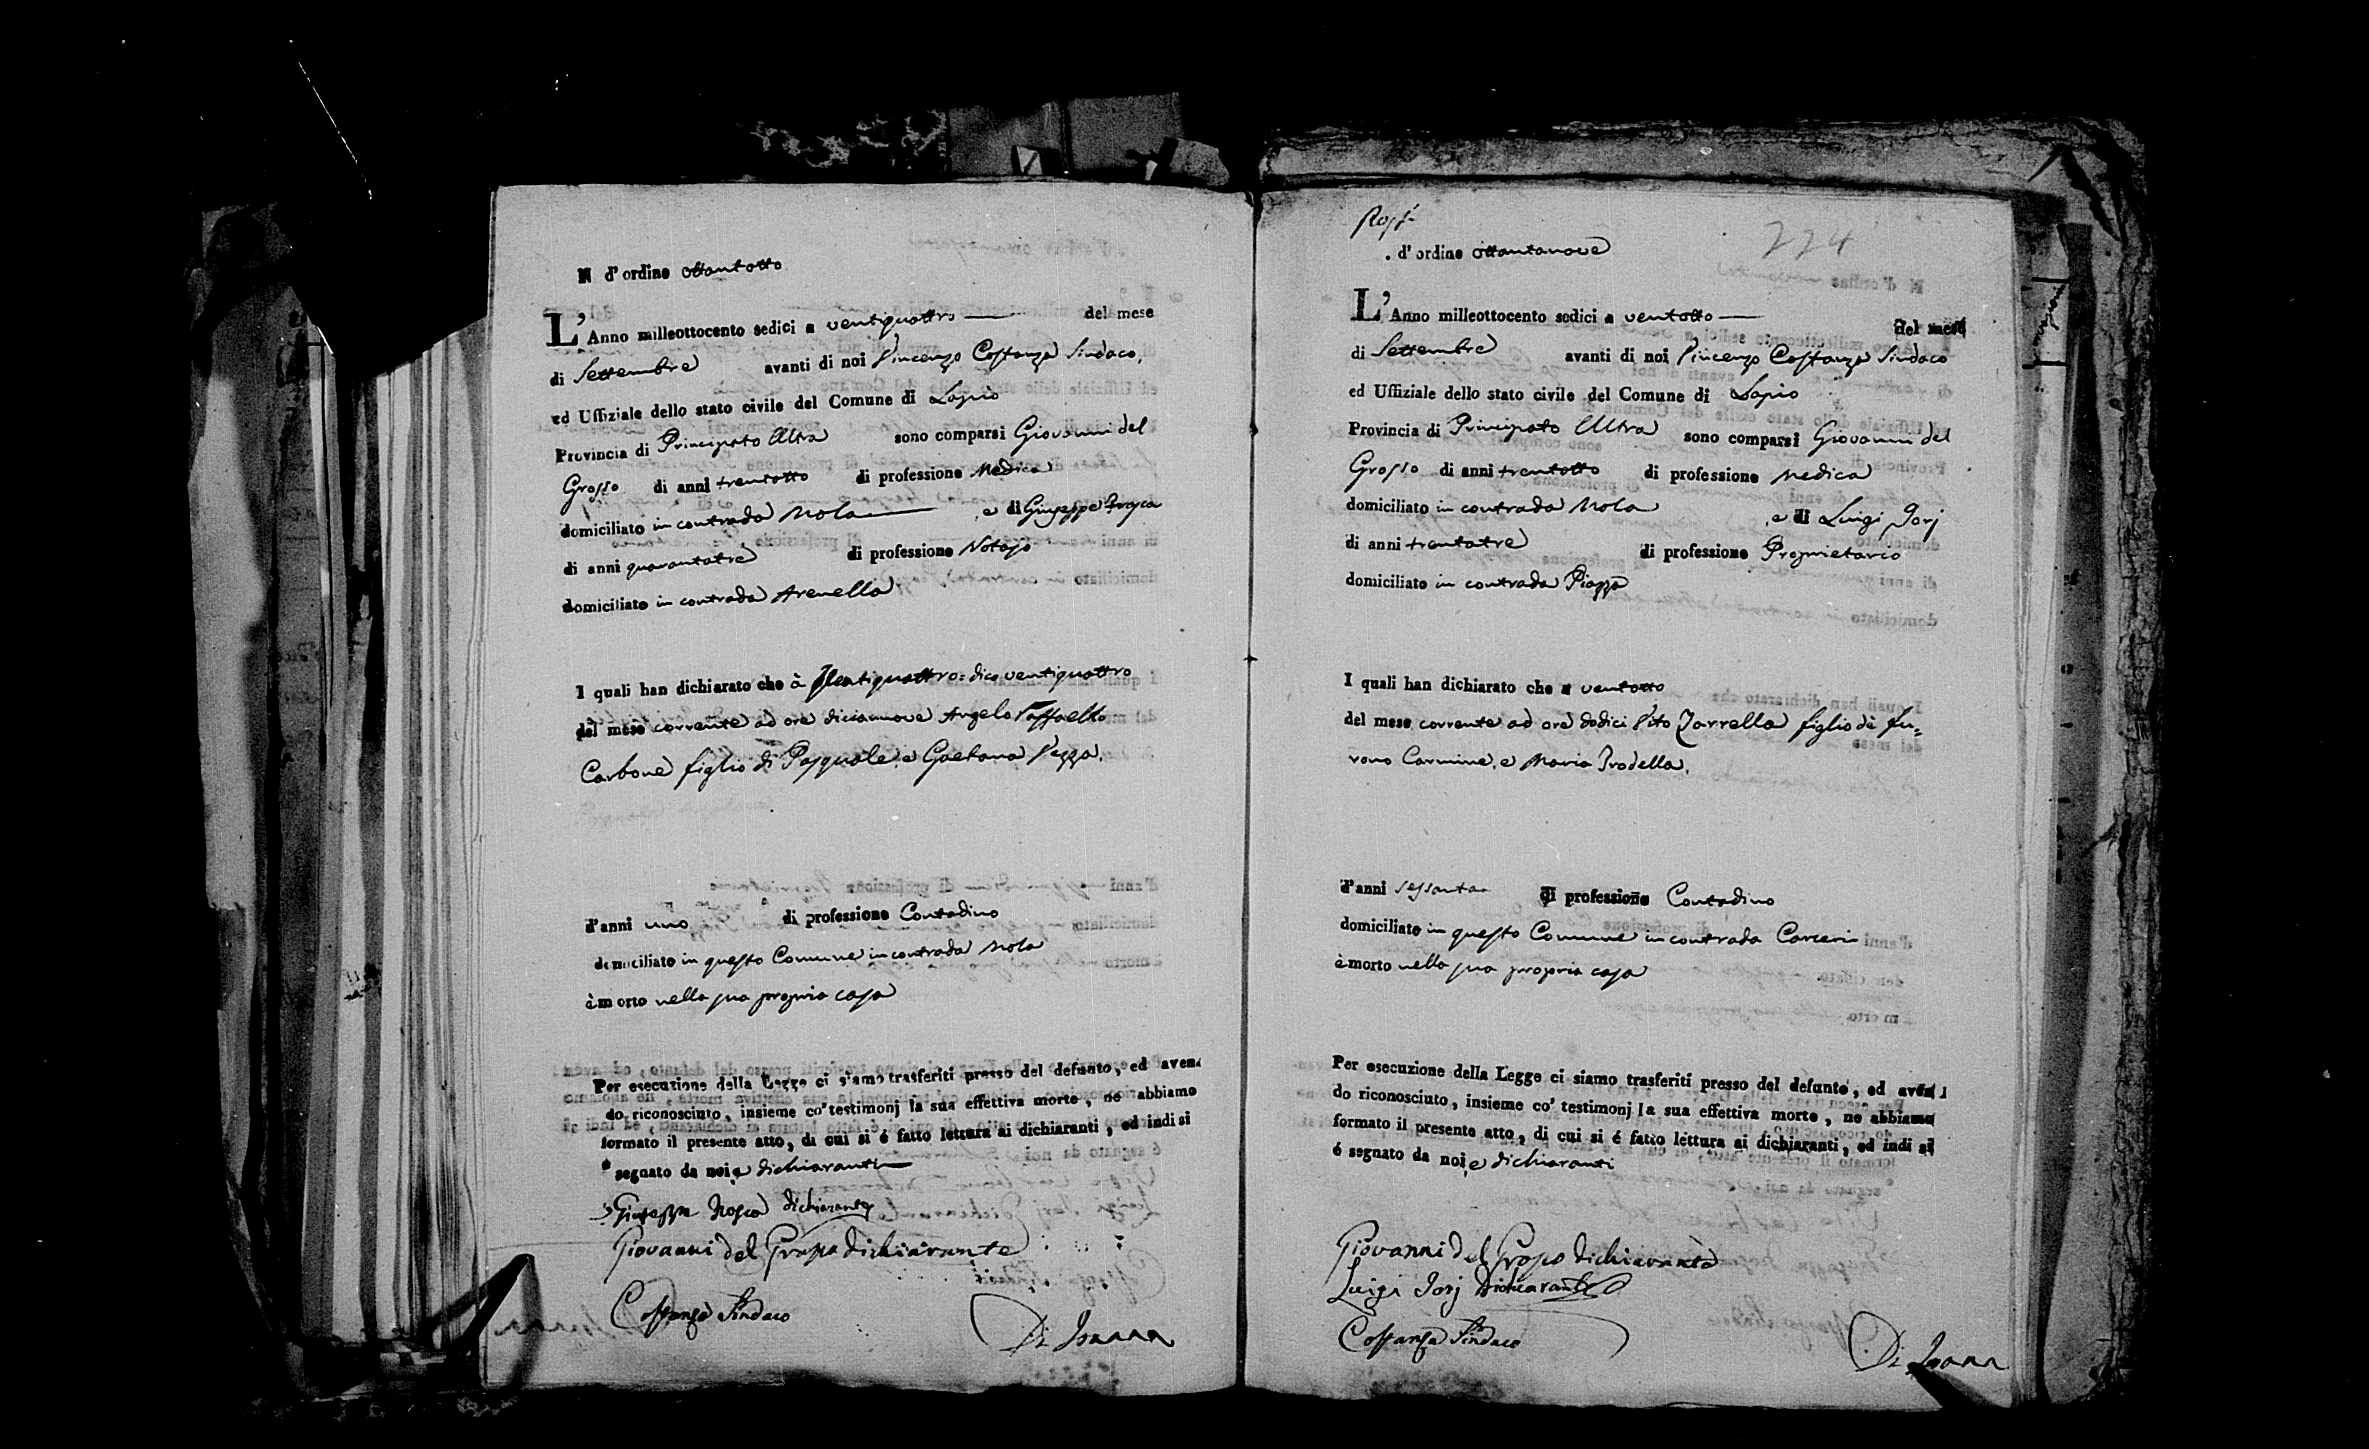 N d'ordine ottantotto
L'Anno milleottocento sedici a ventiquattro del mese
di Settembre avanti di noi Vincenzo Costanza Sindaco,
ed Uffiziale dello stato civile del Comune di Lapio
Provincia di Principato Ultra sono comparsi Giovanni del
Grosso di anni trentotto di professione Medico
domiciliato in contrada Mola e di Giuseppe
di anni quarantatre di professione Notajo
domiciliato in contrada Arenella
I quali han dichiarato che à ventiquattro = dico ventiquattro
del mese corrente ad ore diciannove Angelo Raffaello
Carbone figlio di Pasquale, e Gaetana Pezza.
d'anni uno di professione Contadino
domiciliato in questo Comune in contrada Mola
è morto nella sua propria casa
Per esecuzione della Legge ci siamo trasferiti presso del defunto, ed aven
do riconosciuto, insieme co' testimonj la sua effettiva morte, ne abbiamo
formato il presente atto, di cui si é fatto lettura ai dichiaranti, ed indi si
segnato da noi, e dichiaranti
Giuseppe dichiarante
Giovanni del Grosso dichiarante
Costanza Sindaco
Di Ioanna
224
. d'ordine ottantanove
L'Anno milleottocento sedici a ventotto del mese
di Settembre avanti di noi Vincenzo Costanza Sindaco
ed Uffiziale dello stato civile del Comune di Lapio
Provincia di Principato Ultra sono comparsi Giovanni del
Grosso di anni trentotto di professione Medico
domiciliato in contrada Mola e di Luigi Jorj
di anni trentatre di professione Proprietario
domiciliato in contrada Piazza
I quali han dichiarato che a ventotto
del mese corrente ad ore dodici Vito Zarrella figlio dè fu=
rono Carmine, e Maria Trodella.
d'anni sessanta di professione Contadino
domiciliato in questo Comune in contrada Carceri
è morto nella sua propria casa
Per esecuzione della Legge ci siamo trasferiti presso del defunto, ed aven
do riconosciuto, insieme co' testimonj la sua effettiva morte, ne abbiamo
formato il presente atto, di cui si é fatto lettura ai dichiaranti, ed indi si
é segnato da noi, e dichiaranti
Giovanni del Grosso dichiarante
Luigi Jorj Dichiarante
Costanza Sindaco
Di Ioanna